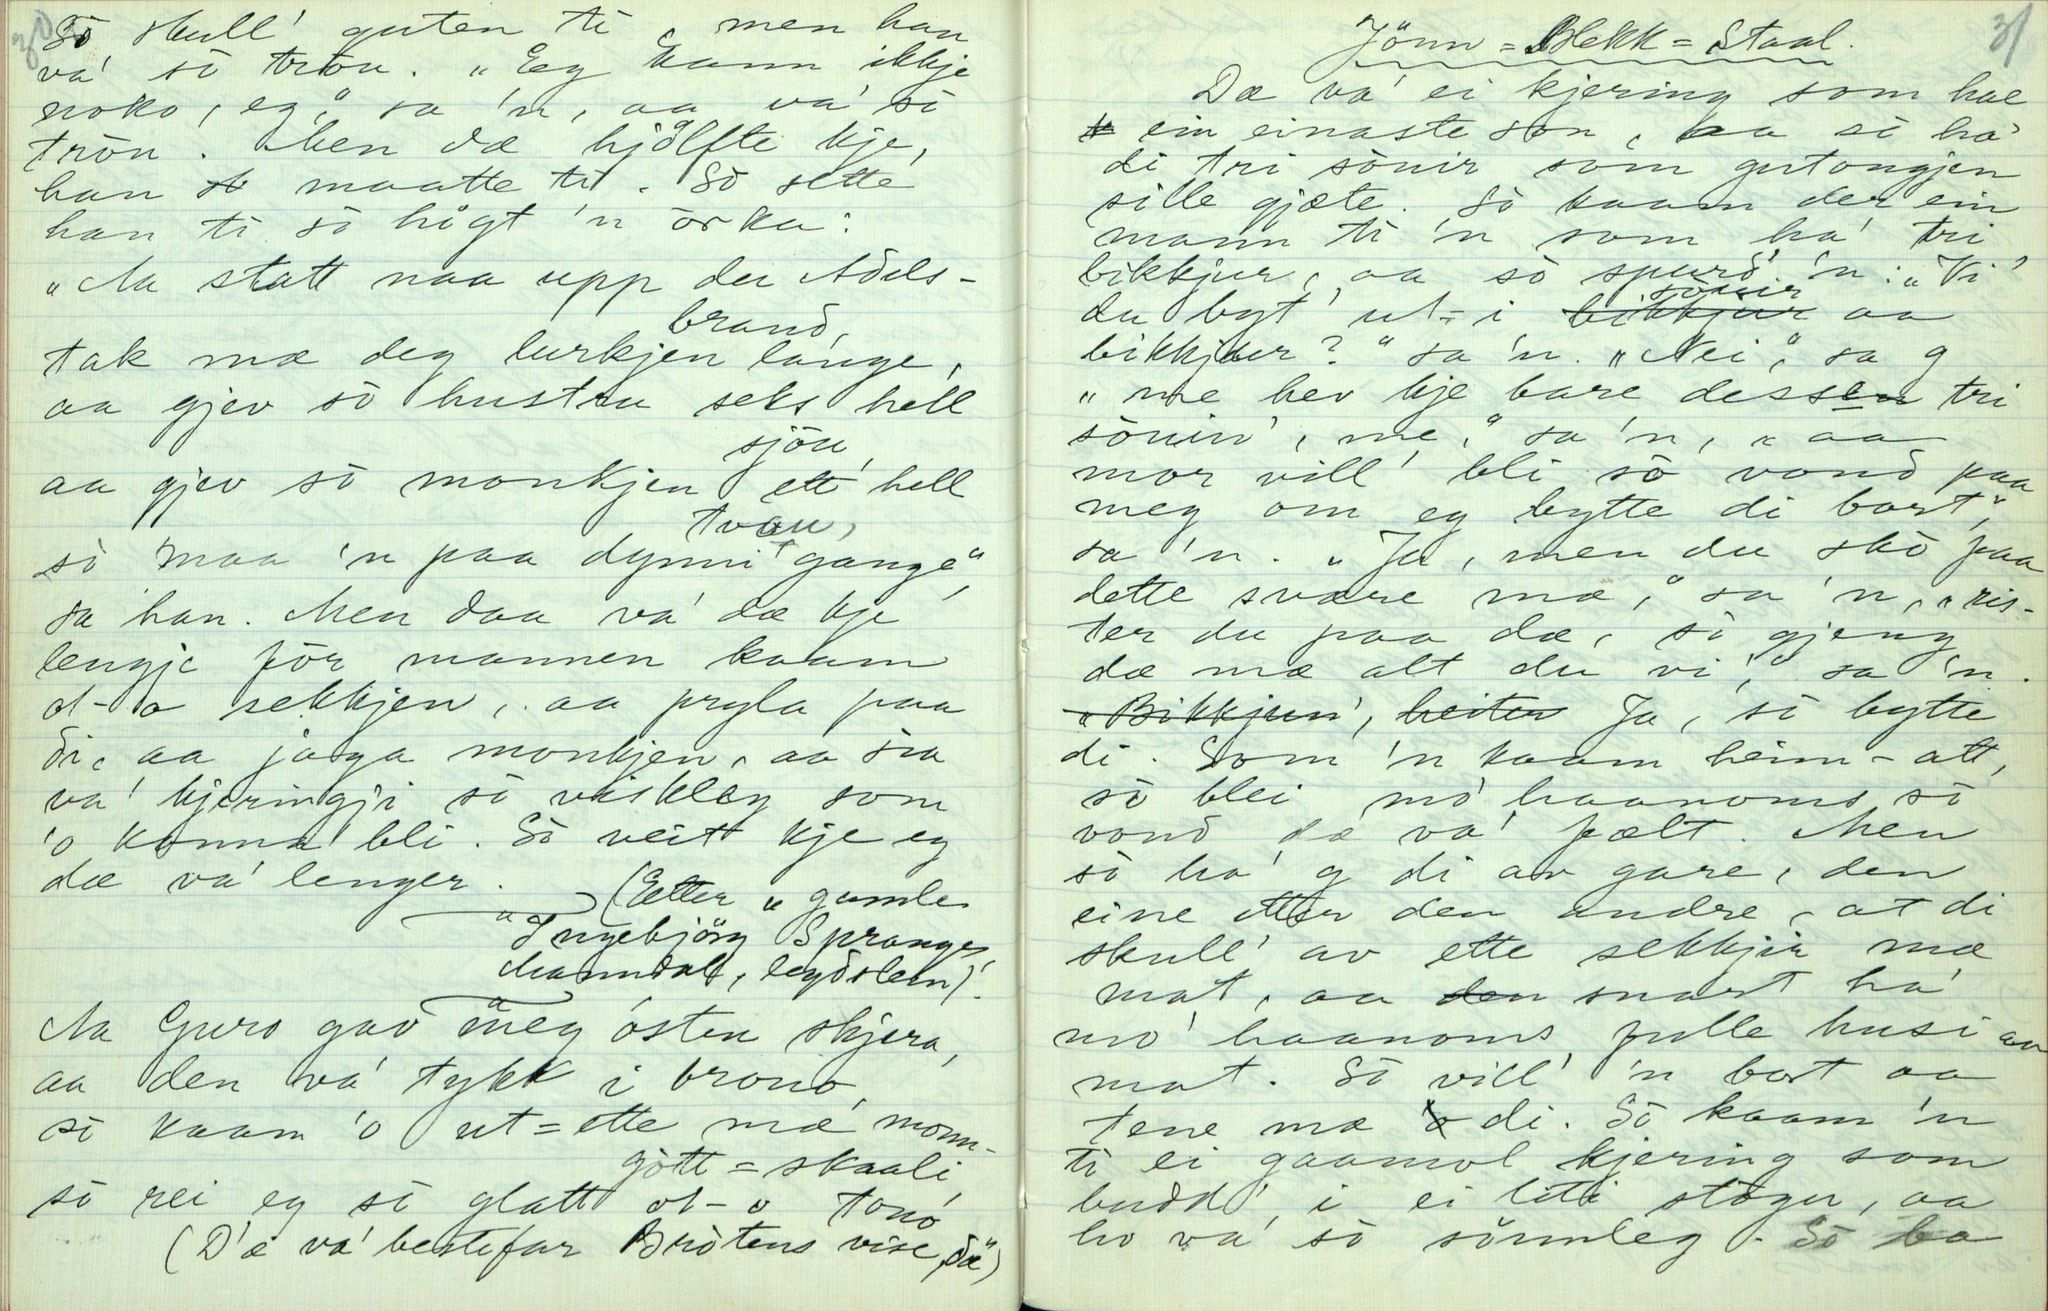 30
Sò skull' guten ti, men han
va' sò tròn. "Eg kann ikkje
noko, eg," sa 'n, aa va' sò
tròn. Men dæ hjòlfte kje,
han maatte ti. Sò sette
han ti sò högt 'n òrka:
"Aa statt naa upp du Adels-
brand,
tak mæ deg lurkjen lange,
aa gjev sò hustru seks hell
sjòu,
aa gjev sò monkjen ett hell
tvau,
sò maa 'n paa dynni gange",
sa han. Men daa va' dæ kje
lengje fòr mannen kaam
ot-o sekkjen, aa pryla paa
di, aa jaga monkjen, aa sia
va' kjeringji sò viskleg som
'o kunna bli. Sò veit kje eg
dæ va' lenger.
(Etter "gamle
Ingebjörg Spranges,
Manndal, legdslem).
Aa Guro gav meg osten skjera,
aa den va' tykk i brono,
sò kaam 'o ut=ette mæ monn-
gjott=skaali
sò rei eg sò glatt ot-o tono
(D'æ va' bestefar Bròtens vise, dæ")
31
Jönn=Blekk=Staal.
Dæ va' ei kjering som hae
ein einaste son, aa sò ha'
di tri sònir som gutongjen
sille gjæte. Sò kaam der ein
mann ti 'n som ha' tri
bikkjur, aa sò spurd' 'n: "Vi'
du byt' ut-i sònir aa
bikkjur?" sa 'n. "Nei," sa g
"me hev kje bare dessen tri
sònin', me," sa 'n, "aa
mor vill' bli sò vond paa
meg om eg bytte di bort,"
sa 'n. "Ja, men du skò faa
dette svære mæ," sa 'n, "ris-
ter du paa dæ, sò gjeng
dæ mæ alt du vi'," sa 'n.
"Bikkjun', heiter Ja, sò bytte
di. Som 'n kaam heim-att,
sò blei mo' haanoms sò
vond dæ va' fælt. Men
sò ha' g di av gare, den
eine etter den andre, at di
skull' av ette sekkjir mæ
mat, aa den snart ha'
mo' haanoms fulle husi aa
mat. Sò vill' 'n bort aa
tene mæ di. Sò kaam 'n
ti ei gaamol kjering som
budd' i ei liti stògu, aa
ho va' sò sömleg. Sò ba